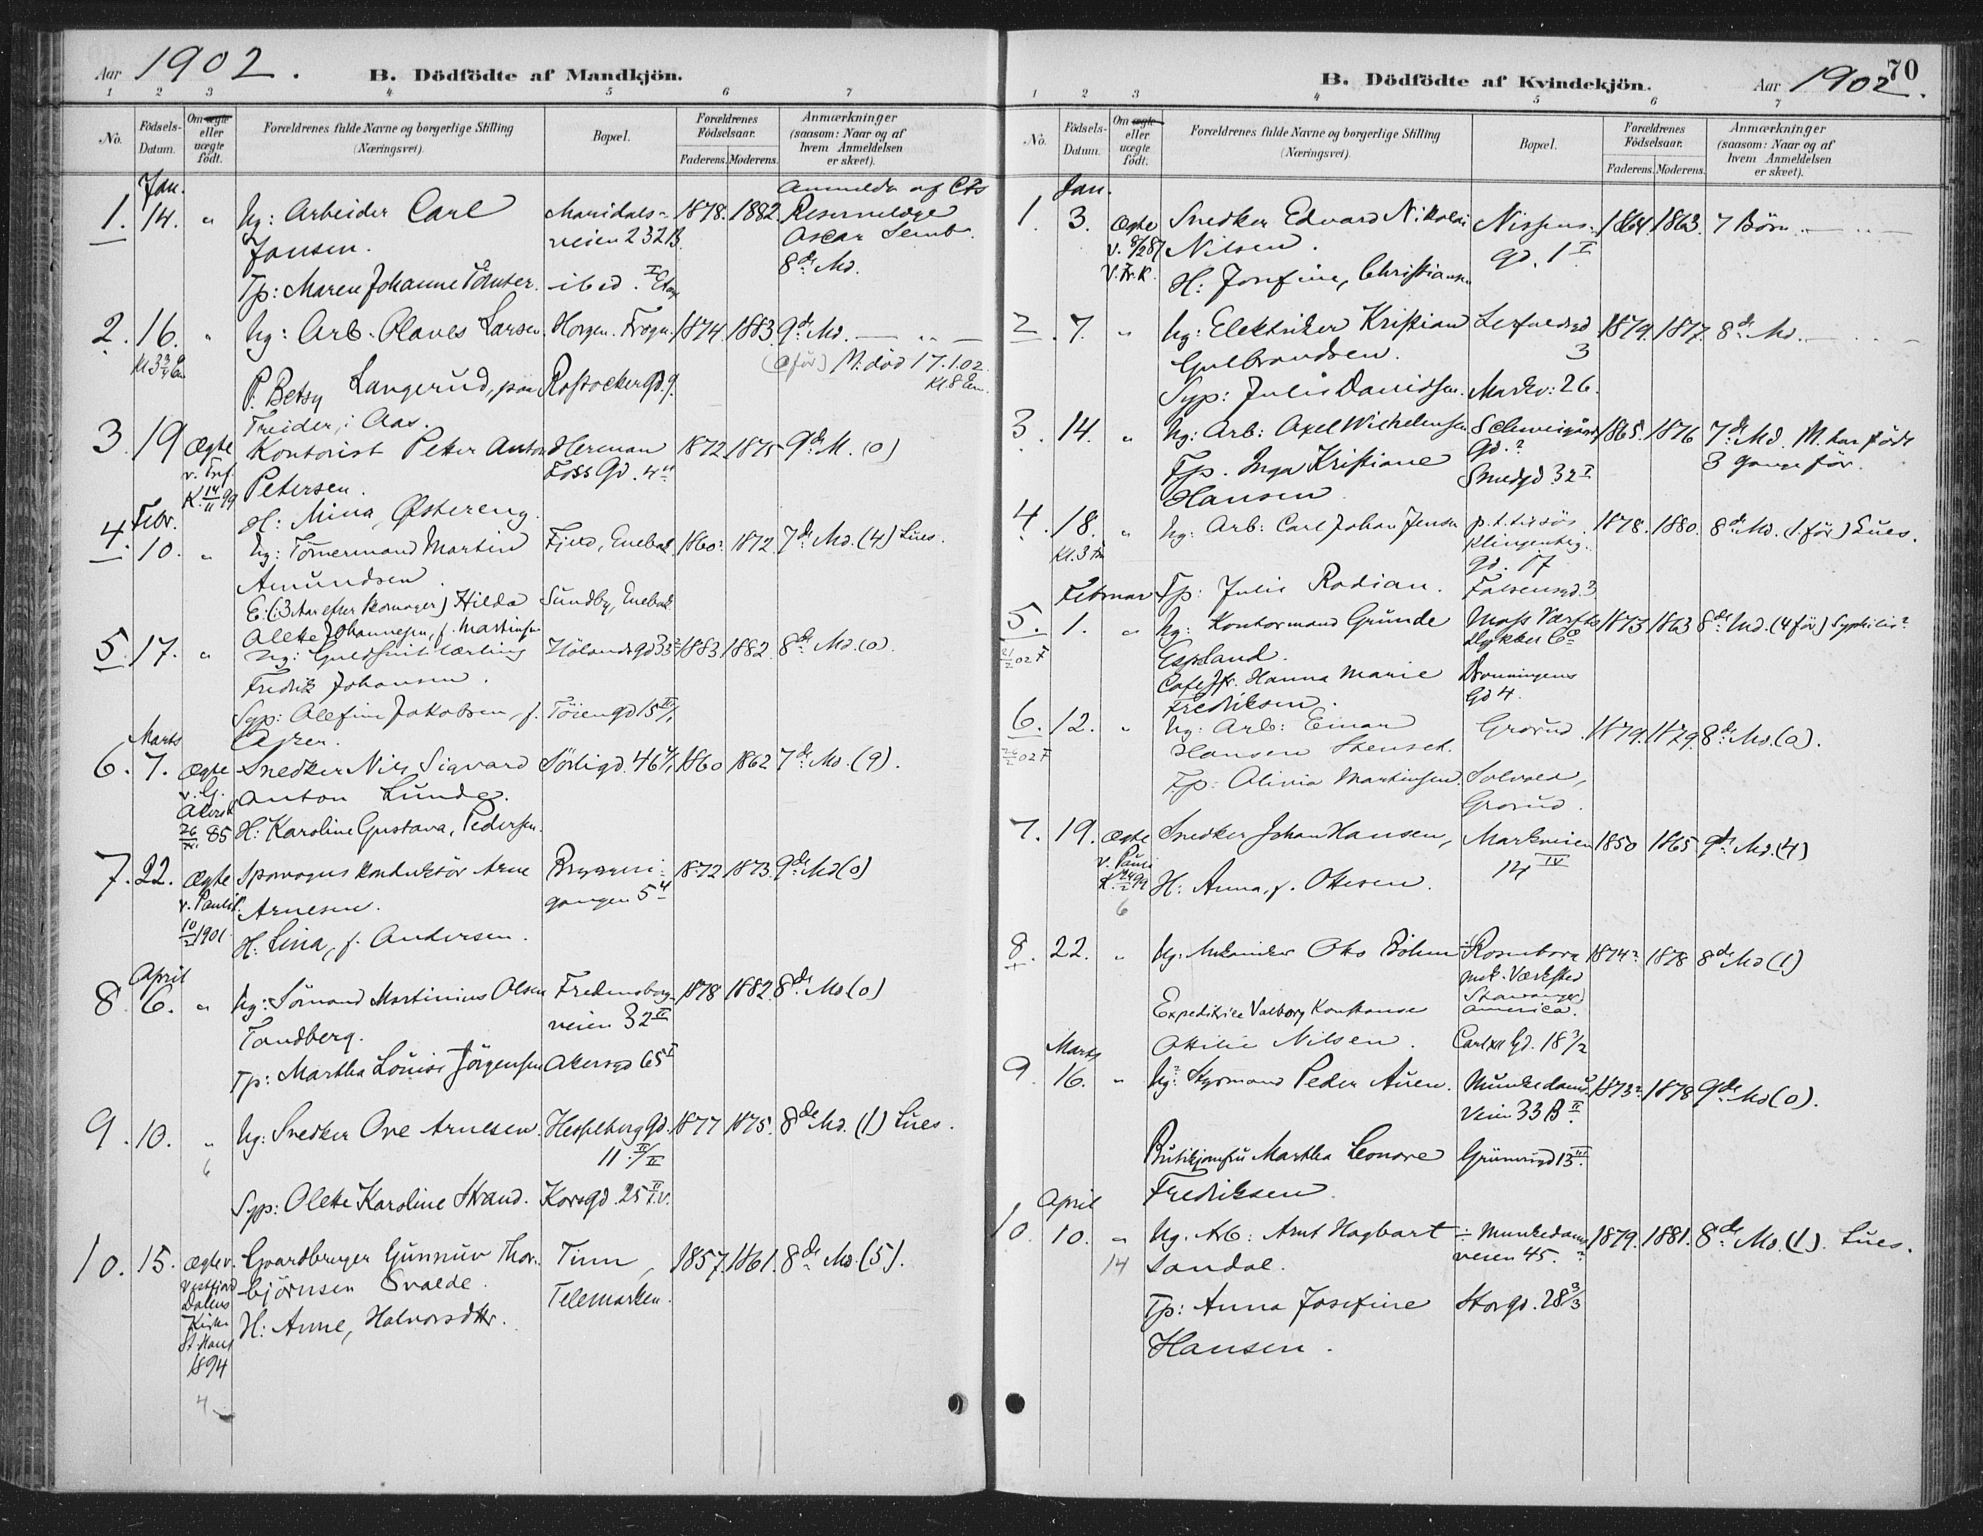 Aar 1902.
B. Dödfödte af Mandkjön.
1 2 3 4 5 6 7
No.
Födsels-
Datum.
Om ægte
eller
uægte
födt.
Forældrenes fulde Navne og borgerlige Stilling
(Næringsvei).
Bopæl.
Forældrenes
Födselsaar.
Faderens. Moderens.
Anmærkninger
(saasom: Naar og af
hvem Anmeldelsen
er skeet).
Jan.
1. 14. " Ug: Arbeider Carl Maridals- 1878. 1882. Reservelæge
Jansen. veien 232 B. Oscar Semb.
8de Md.
Tp: Maren Johanne ibid.
2. 16. " Ug: Arb. Olaves Larsen. Horgen. Frogn. 1874. 1883. 9de Md. — " —
M. död 17.1.02.
P. Betsy Langerud, paa Rostockergd. 9.
Treider, i Aas.
3. 19 Ægte Kontorist Peter Anton Herman 1872. 1875 9de M. (0)
Petersen. Foss Gd. 4
K. 14/11 99
H: Mina, Østereng.
Febr.
4. 10. " Ug: Tömermand Martin Enebak. 1860. 1872. 7de Md. (4) Lues.
Amundsen.
E. (3 Aar efter Hilda Sundby, Enebak
Olette Johannesen, f. Martinsen
5. 17. " Ug: Guldsmitlærling Hölandsgd 33 1883 1882. 8de Md. (0)
Fredrik Johansen.
Syp: Olefine Jakobsen, f. Töiengd 15
Marts
6. 7. Ægte Snedker Nils Sigvard Sörligd. 46 1860 1862 7de Md. (9).
v. G. Anton Lunde.
Akers K.
85 H: Karoline Gustava, Pedersen.
7. 22. Ægte Sporvogns konduktör Arne Bryggeri- 1872 1873. 9de Md (0)
v. Pauli K. Arnesen. gangen 5
1901. H: Lina, f. Andersen.
April
8. 6. " Ug: Sömand Martinius Olsen Fredensborg- 1878 1882. 8de Md. (0)
Tandberg. veien 32 II
Tp: Martha Louise Jörgensen Akersgd 65 I
9. 10. " Ug: Snedker Ove Arnesen. Hesselberg Gd. 1877 1875. 8de Md. (1) Lues.
6 11.
Syp: Olette Karoline Strand. Korsgd. 25
10. 15. Ægte v. Gaardbruger Gunnuv Thor- Tinn, 1857. 1861. 8de Md. (5).
Vestfjord björnsen Svalde. Telemarken.
Dalens
Kirke H: Anne, Halvorsdtr.
St. Hans
1894
4
70
B. Dödfödte af Kvindekjön. Aar 1902.
1 2 3 4 5 6 7
No.
Födsels-
Datum.
Om ægte
eller
uægte
födt.
Forældrenes fulde Navne og borgerlige Stilling
(Næringsvei).
Bopæl.
Forældrenes
Födselsaar.
Faderens. Moderens.
Anmærkninger
(saasom: Naar og af
hvem Anmeldelsen
er skeet).
Jan.
1. 3. Ægte Snedker Edvard Nikolai Nissens- 1864 1863. 7 Börn. — " —
Nilsen. gd. 1 I
V. Fr. K. H: Josefine, Christiansen
2. 7. " Ug: Elektriker Kristian 1879. 1877. 8de Md. — " —
Gulbrandsen. 3
Syp: Julie Davidsen. Markv: 26.
3. 14. " Ug: Arb: Axel Wilhelmsen Schweigårds 1865. 1876 7de Md. M. har födt
Gd.? 3 gange för.
Tp. Inga Kristiane Smedgd 32 I
Hansen.
4. 18. " Ug: Arb: Carl Johan Jensen p.t. tilsös. 1878. 1880. 8de Md. (1 för) Lues.
Kl. 3 Klingenberg
gd. 17
Februar Tp: Julie Rodian. Falsensgd. 3
5. 1. " Ug: Kontormand Grunde Moss Værft 1873 1863 8de Md. (4 för) Syphilis?
Espeland. Dykker Co
Café Jfr. Hanna Marie Dronningens
Fredriksen. Gd 4.
6. 12. " Ug: Arb: Einar Grorud. 1879. 1879. 8de Md. (0).
Hansen
Tp: Olivia Martinsen. Solvold,
Grorud.
7. 19. Ægte Snedker Johan Hansen, Markveien 1850 1865 9de Md. (4)
v. Pauli 14 IV
K. H: Anna, f. Ottesen.
6
8. 22. " Ug. Mekaniker Oto Böhm Rosenborg 1874? 1878 8de Md (1)
mek. Værksted
Stavanger
Expeditrice Valborg Konstanse America.
Otilie Nilsen. Carl XII Gd. 18 3/2
Marts
9. 16. " Ug: Styrmand Peder Auen. Munkedams- 1873? 1878 9de Md (0).
Veien 33 B II
Butikjomfru Martha Leonore Grünersgd 13 III
Fredriksen.
April
10. 10. " Ug. Arb: Arnt Hagbart ÷ Munkedams- 1879. 1881. 8de Md. (1). Lues.
14 Sandal. veien 45.?
Tp: Anna Josefine Storgd. 28 3/3
Hansen.